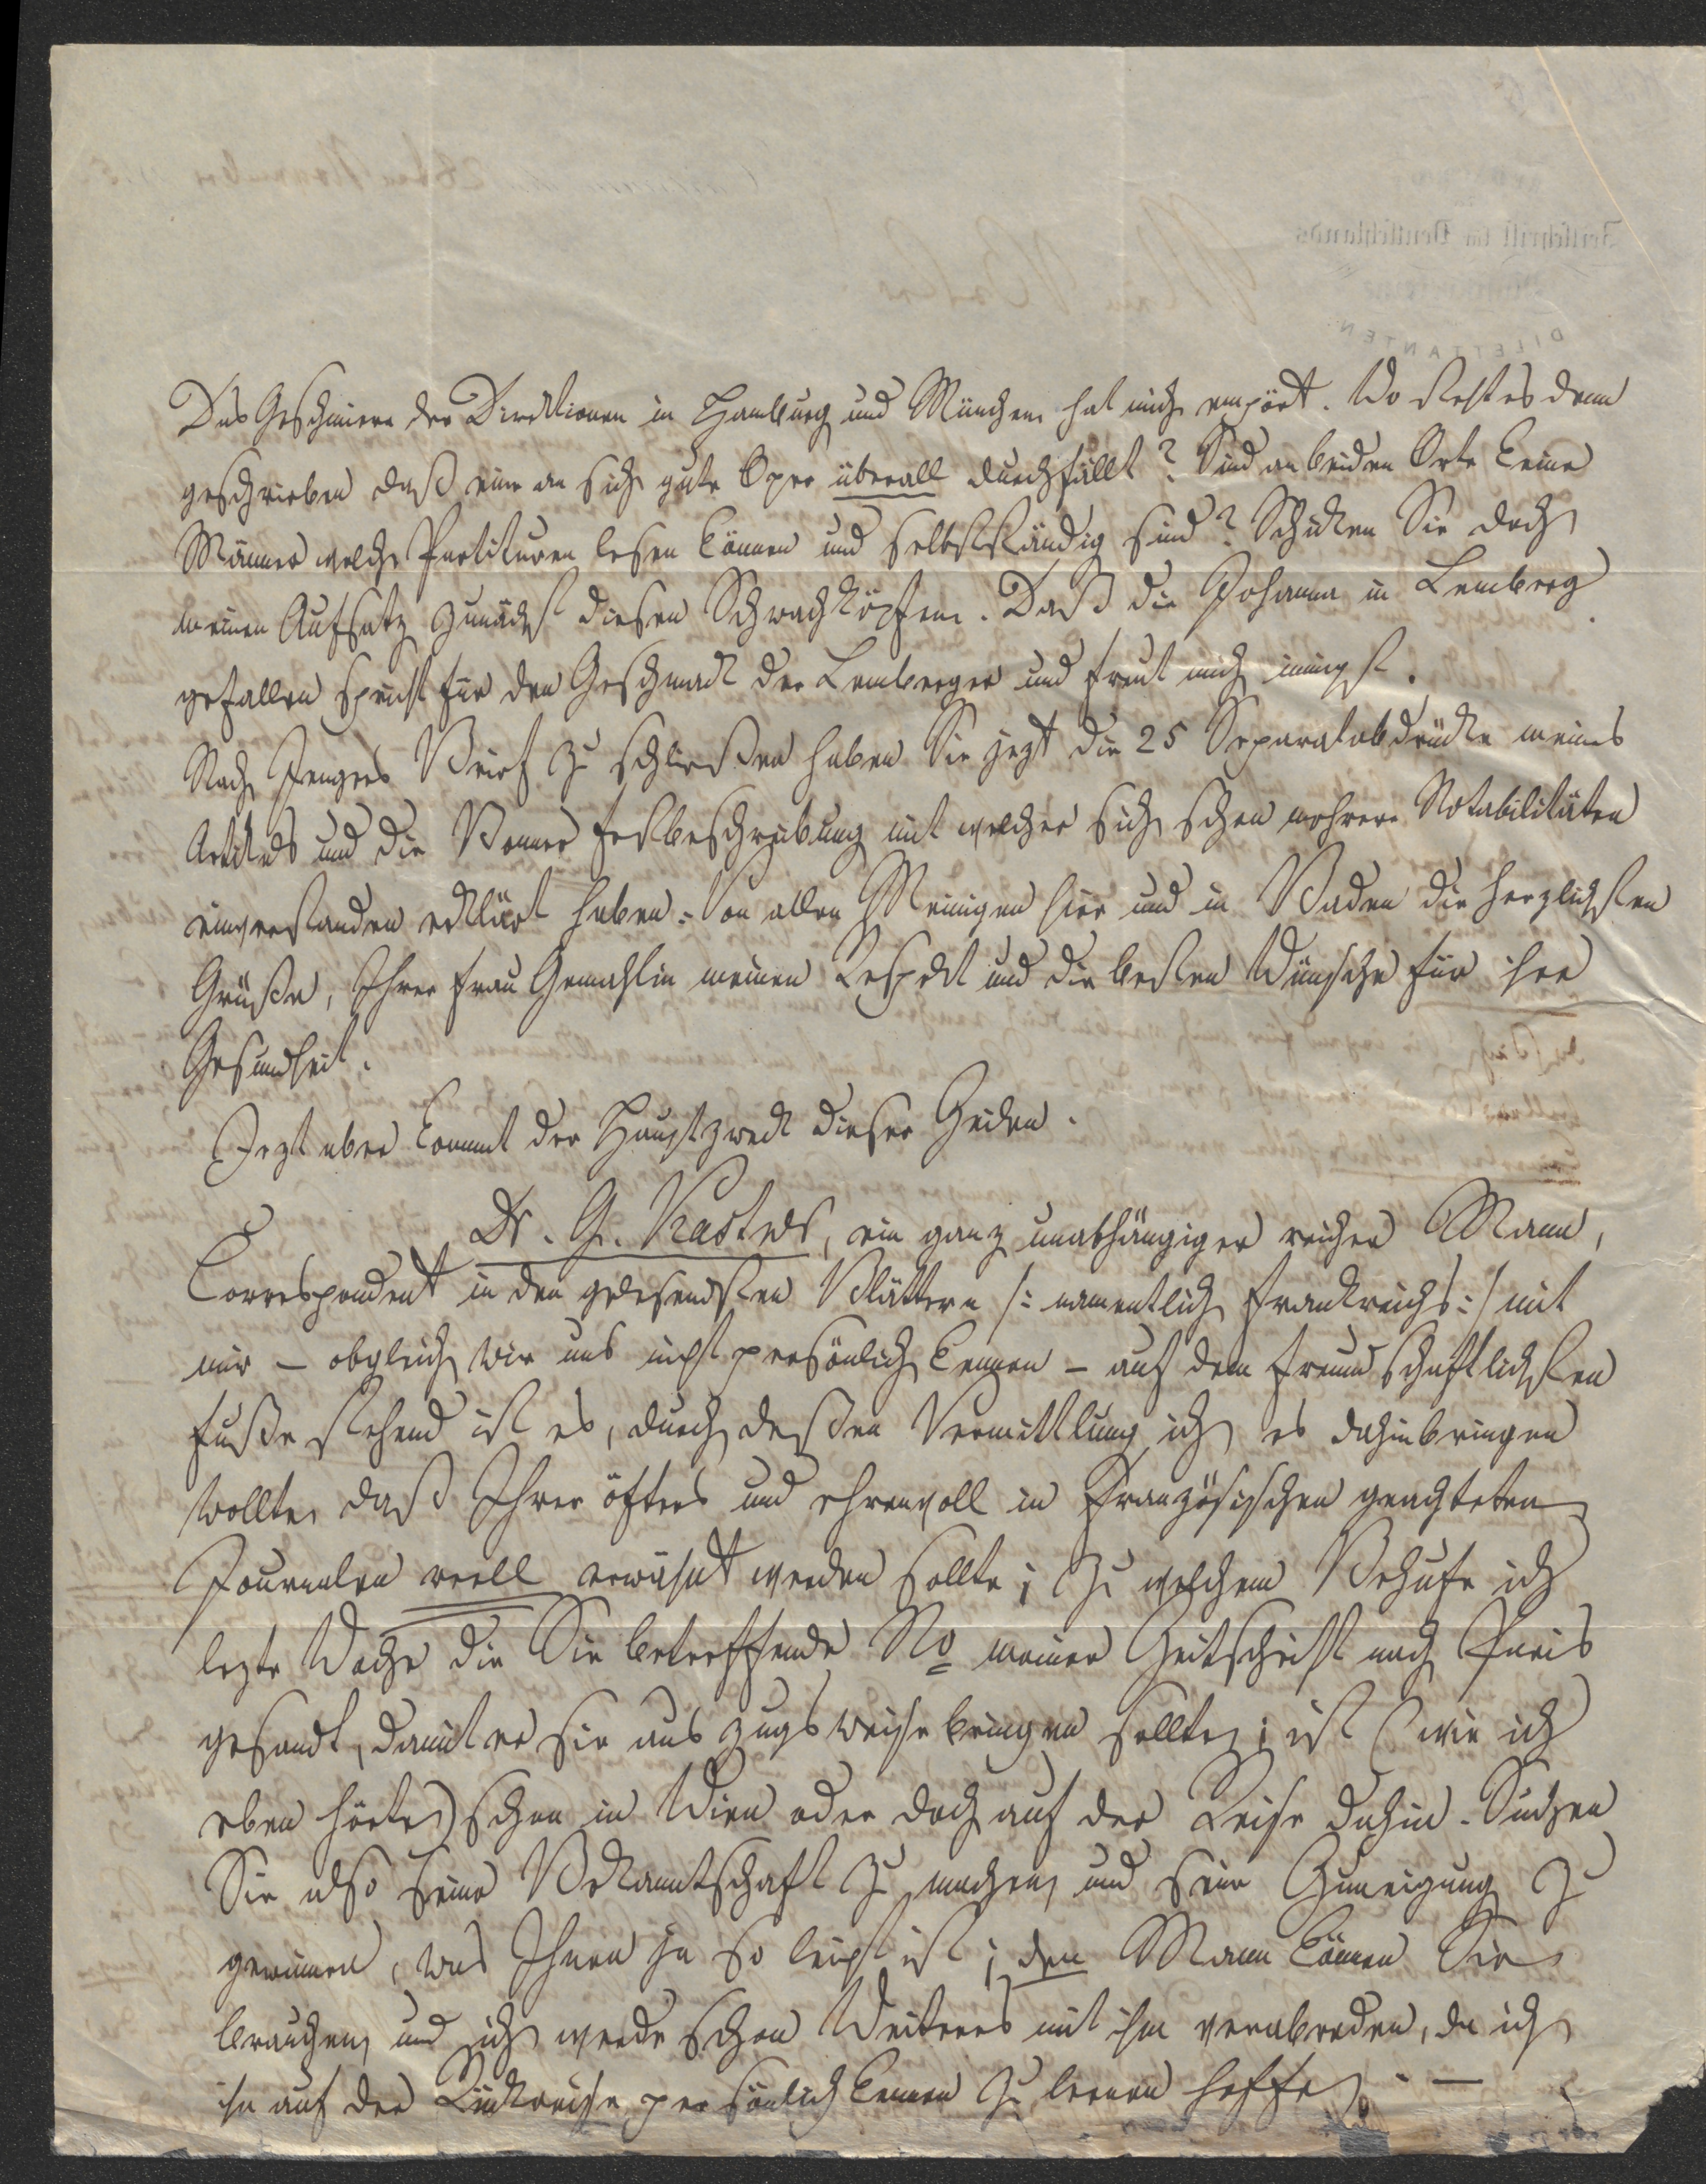 Das Geschmiere der Direktionen in Hamburg und München hat mich empört. Wo steht es denn
geschrieben daß eine an sich gute Oper überall durchfällt? Sind an beiden Orte keine
Männer welche Partituren lesen können und selbstständig sind? Schicken Sie doch
meinen Aufsatz zunächst diesen Schwachköpfen. Daß die Johanna in Lemberg
gefallen spricht für den Geschmack der Lemberger und freut mich innigst.
Nach Jengers Brief zu schließen haben Sie jezt die 25 Separatabdrücke meines
Artikels und die Bonner Festbeschreibung mit welcher sich schon mehrere Notabilitäten
einverstanden erklärt haben. Von allen Meinigen hier und in Baden die herzlichsten
Grüße, Ihrer Frau Gemahlin meinen Respekt und die besten Wünsche für ihre
Gesundheit.
Jezt aber kommt der Hauptzweck dieser Zeilen.
Dr. G. Kastner, ein ganz unabhängiger reicher Mann,
Correspondent in den gelesendsten Blättern /: namentlich Frankreichs :/ mit
mir – obgleich wir uns nicht persönlich kennen – auf dem freundschaftlichsten
Fuße stehend ist es, durch deßen Vermittlung ich es dahinbringen
wollte, daß Ihrer öfters und ehrenvoll in französischen geachteten
Journalen reell erwähnt werden sollte; zu welchem Behufe ich
lezte Woche die Sie betreffende No meiner Zeitschrift nach Paris
gesandt, damit er sie auszugsweise bringen sollte; ist (wie ich
eben hörte) schon in Wien oder doch auf der Reise dahin. Suchen
Sie also seine Bekanntschaft zu machen, und seine Zuneigung zu
gewinnen, was Ihnen ja so leicht ist; den Mann können Sie
brauchen, und ich werde schon Weiteres mit ihm verabreden, da ich
ihn auf der Rückreise persönlich kennen zu lernen hoffe. —